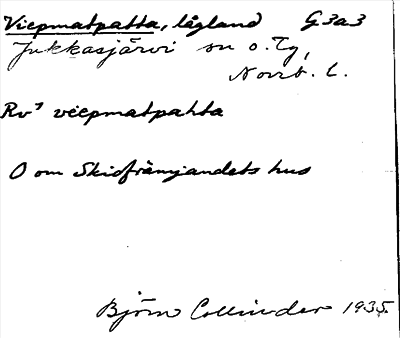 Viepmatpatta, lågland G3a3
Jukkasjärvi sn o. Tg,
Norrb. l.
Rv⁷ viepmatpahta
O om Skidfrämjandets hus
Björn Collinder 1935.